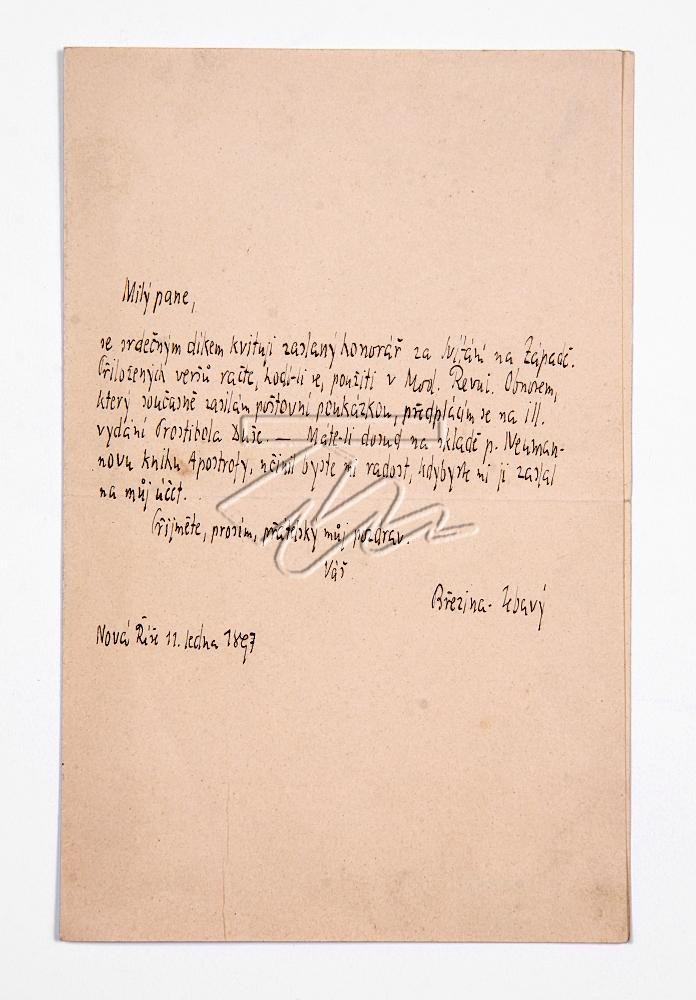 Milý pane,
se srdečným díkem kvituji zaslaný honorář za Svítání na Západě.
Přiložených veršů račte, hodí-li se, použíti v Mod. Revui. Obnosem,
který současně zasílám poštovní poukázkou, předplácím se na ill.
vydání Prostibola Duše. — Máte-li dosud na skladě p. Neuman-
novu knihu Apostrofy, učinil byste mi radost, kdybyste mi ji zaslal
na můj účet.
Přijměte, prosím, přátelský můj pozdrav.
Váš
Březina-Jebavý
Nová Říše 11. ledna 1897